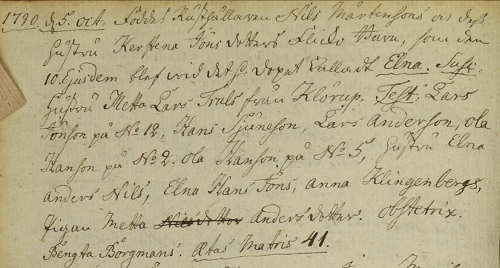 1790. d 5. oct. föddes Rusthållaren Nils Mårtensons och dess
hustru Kerstena Jöns dotters flicko barn, som den
10. Ejusdem blef vid det s. dopet kallad Elna. Susc:
hustru Metta Lars Truls från Klörup. Test: Lars
Jönson på No 12, Hans Sjuneson, Lars Anderson, Ola
Hanson på No 2. Ola Hanson på No 5, hustru Elna
Anders Nils, Elna Hans Jöns, Anna Klingenbergs,
Pigan Metta Nilsdotter Anders dotter. obstetrix.
Bengta Borgmans. Ætas Matris 41.